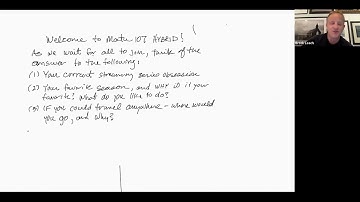 Welcome to Math 107 HYBRID!
As we wait for all to join, think of the
answer to the following:
(1) Your current streaming series obsession
(2) Your favorite season, and why is it your
favorite? What do you like to do?
(3) If you could travel anywhere - where would
you go, and why?